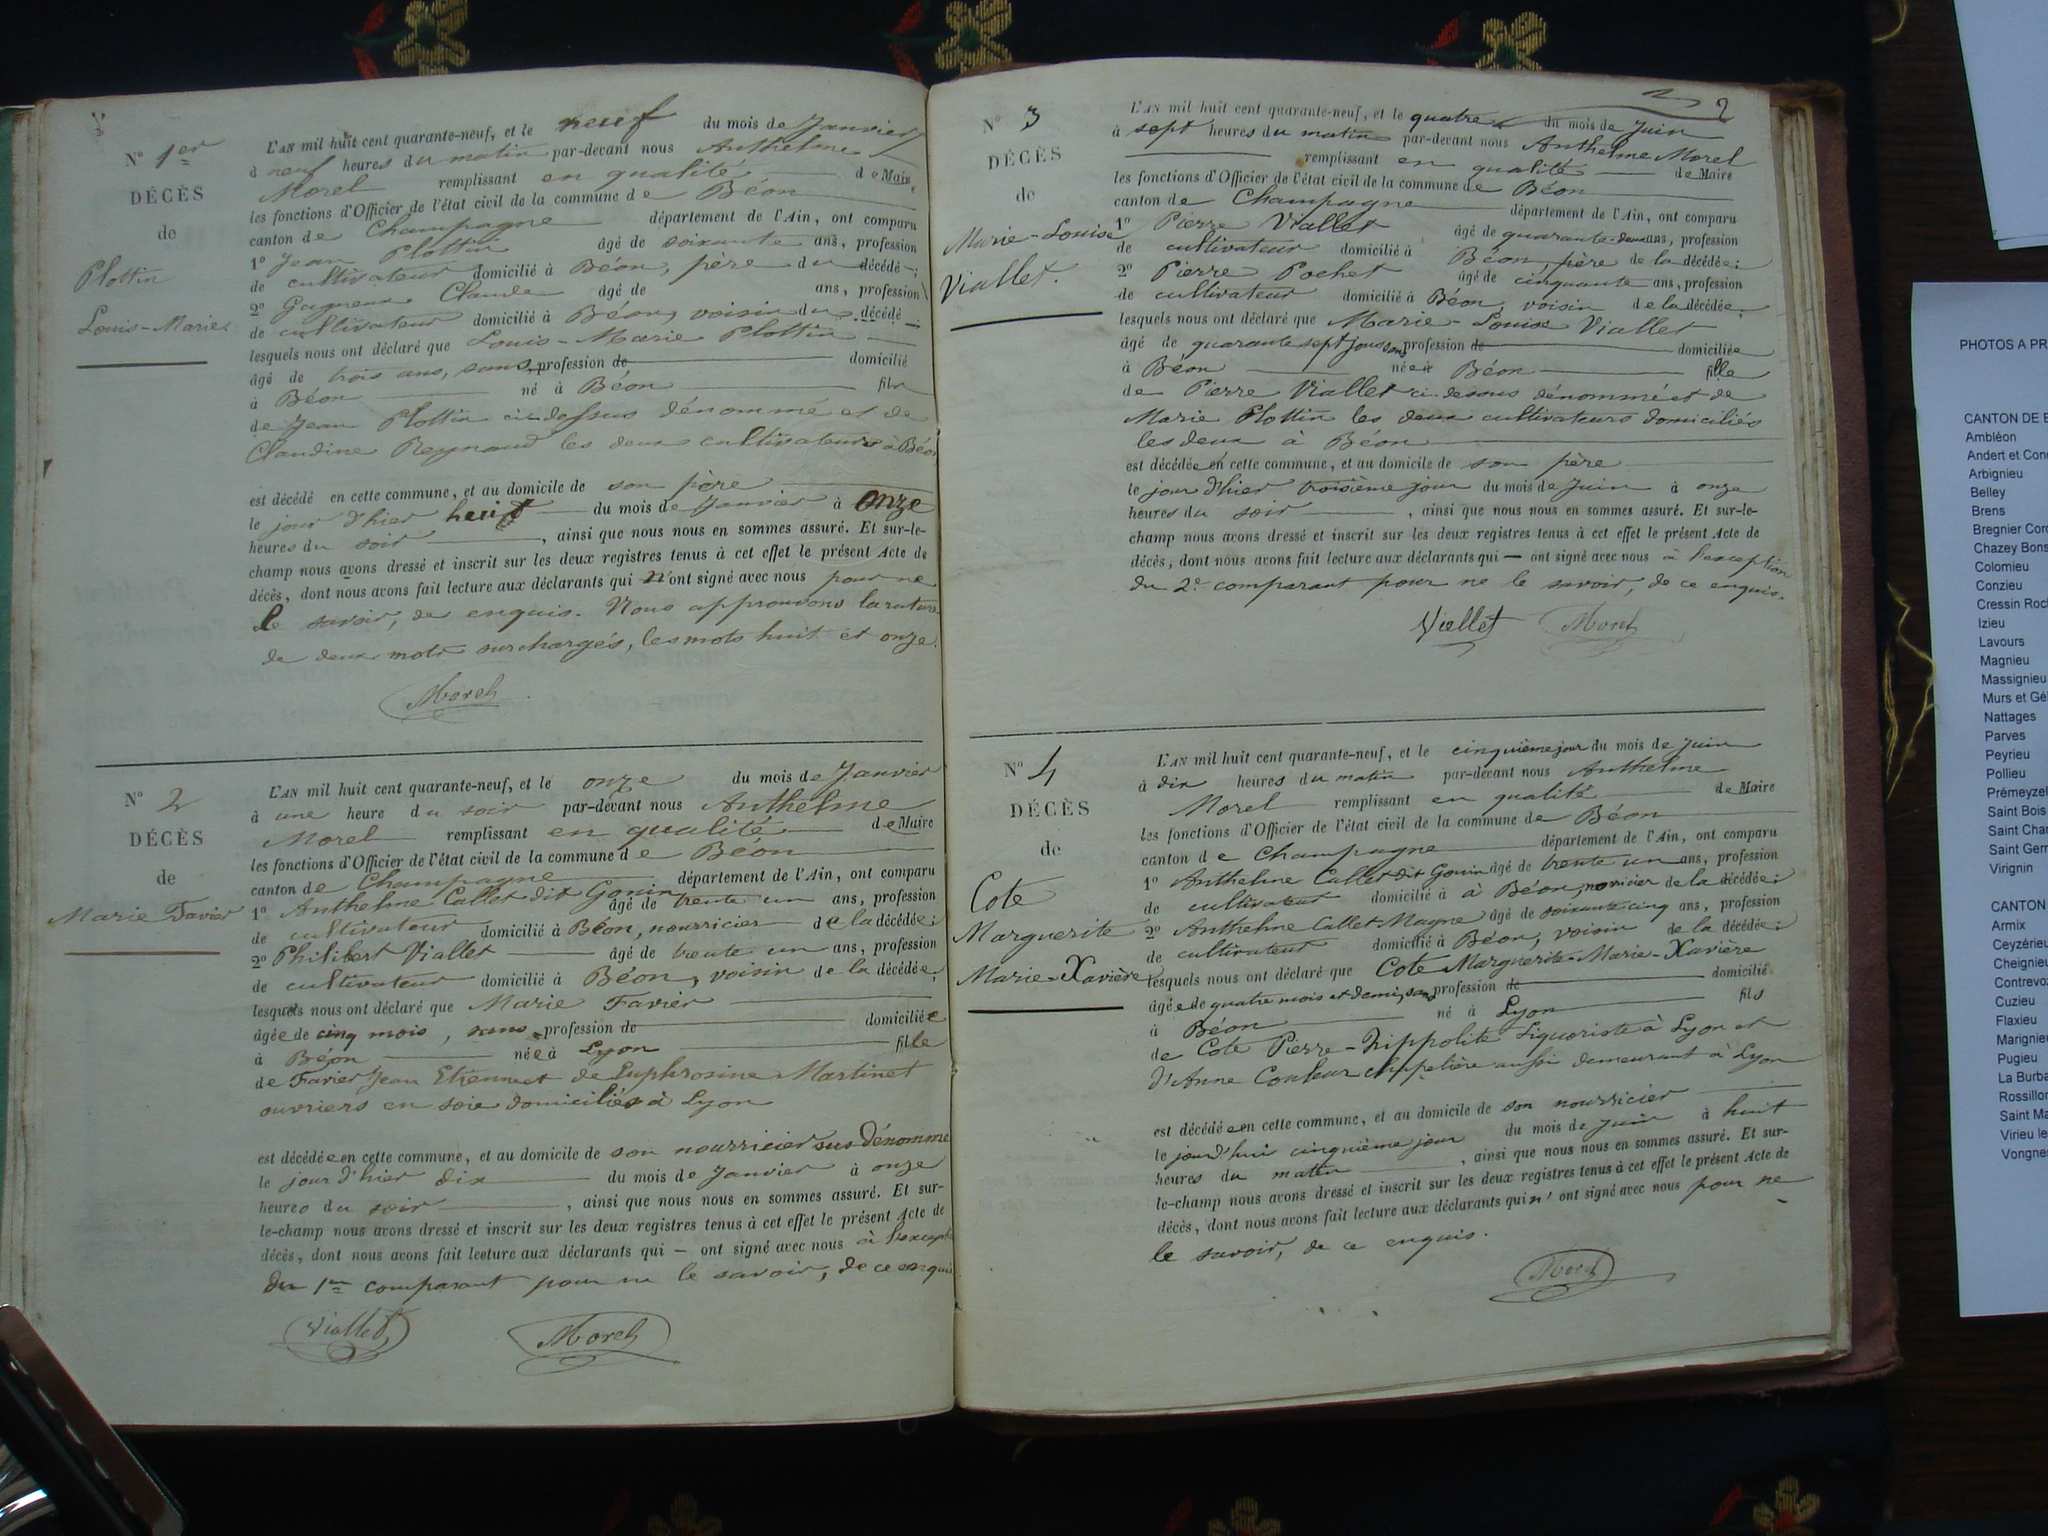 Nº 1er
DÉCÈS
de
Plottin
Louis-Marie
L'AN mil huit cent quarante-neuf, et le neuf du mois de Janvier
à neuf heures du matin par-devant nous Anthelme
Morel remplissant en qualité de Maire
les fonctions d'Officier de l'état civil de la commune de Béon
canton de Champagne département de l'Ain, ont comparu
1º Jean Plottin âgé de soixante ans, profession
de cultivateur domicilié à Béon, père du décédé;
2º Gagneux Claude âgé de ans, profession
de cultivateur domicilié à Béon, voisin du décédé
lesquels nous ont déclaré que Louis-Marie Plottin
âgé de trois ans, sans profession de domicilié
à Béon né à Béon fils
de Jean Plottin ci-dessus dénommé et de
Claudine Reynaud les deux cultivateurs à Béon
est décédé en cette commune, et au domicile de son père
le jour d'hier huit du mois de Janvier à onze
heures du soir, ainsi que nous nous en sommes assuré. Et sur-le-
champ nous avons dressé et inscrit sur les deux registres tenus à cet effet le présent Acte de
décès, dont nous avons fait lecture aux déclarants qui n'ont signé avec nous pour ne
le savoir, de enquis. Nous approuvons la rature
de deux mots surchargés, les mots huit et onze.
Morel
Nº 2
DÉCÈS
de
Marie Favier
L'AN mil huit cent quarante-neuf, et le onze du mois de Janvier
à une heure du soir par-devant nous Anthelme
Morel remplissant en qualité de Maire
les fonctions d'Officier de l'état civil de la commune de Béon
canton de Champagne département de l'Ain, ont comparu
1º Anthelme Callet dit Gonin âgé de trente un ans, profession
de cultivateur domicilié à Béon, nourricier de la décédée;
2º Philibert Viallet âgé de trente un ans, profession
de cultivateur domicilié à Béon, voisin de la décédée;
lesquels nous ont déclaré que Marie Favier
âgée de cinq mois, sans profession de domiciliée
à Béon née à Lyon fille
de Favier Jean Etienne et de Euphrosine Martinet
ouvriers en soie domiciliés à Lyon
est décédée en cette commune, et au domicile de son nourricier sus dénommé
le jour d'hier dix du mois de Janvier à onze
heures du soir, ainsi que nous nous en sommes assuré. Et sur-
le-champ nous avons dressé et inscrit sur les deux registres tenus à cet effet le présent Acte de
décès, dont nous avons fait lecture aux déclarants qui — ont signé avec nous à l'except
du 1er comparant pour ne le savoir, de ce enquis
Viallet Morel
2
Nº 3
DÉCÈS
de
Marie-Louise
Viallet.
L'AN mil huit cent quarante-neuf, et le quatre du mois de Juin
à sept heures du matin par-devant nous Anthelme Morel
remplissant en qualité de Maire
les fonctions d'Officier de l'état civil de la commune de Béon
canton de Champagne département de l'Ain, ont comparu
1º Pierre Viallet âgé de quarante-deux ans, profession
de cultivateur domicilié à Béon, père de la décédée;
2º Pierre Pochet âgé de cinquante ans, profession
de cultivateur domicilié à Béon, voisin de la décédée,
lesquels nous ont déclaré que Marie-Louise Viallet
âgé de quarante sept jours sans profession de domiciliée
à Béon née à Béon fille
de Pierre Viallet ci-dessus dénommé et de
Marie Plottin les deux cultivateurs domiciliés
les deux à Béon
est décédée en cette commune, et au domicile de son père
le jour d'hier troisième jour du mois de Juin à onze
heures du soir, ainsi que nous nous en sommes assuré. Et sur-le-
champ nous avons dressé et inscrit sur les deux registres tenus à cet effet le présent Acte de
décès, dont nous avons fait lecture aux déclarants qui — ont signé avec nous à l'exception
du 2e comparant pour ne le savoir, de ce enquis.
Viallet Morel
Nº 4
DÉCÈS
de
Cote
Marguerite
Marie-Xavière
L'AN mil huit cent quarante-neuf, et le cinquième jour du mois de Juin
à dix heures du matin par-devant nous Anthelme
Morel remplissant en qualité de Maire
les fonctions d'Officier de l'état civil de la commune de Béon
canton de Champagne département de l'Ain, ont comparu
1º Anthelme Callet dit Gonin âgé de trente un ans, profession
de cultivateur domicilié à à Béon, nourricier de la décédée;
2º Anthelme Callet-Magne âgé de soixante cinq ans, profession
de cultivateur domicilié à Béon, voisin de la décédée;
lesquels nous ont déclaré que Cote Marguerite-Marie-Xavière
âgée de quatre mois et demi, sans profession de domicilié
à Béon né à Lyon fils
de Cote Pierre-Hippolite Liquoriste à Lyon et
d'Anne Couteur chapelière aussi demeurant à Lyon
est décédée en cette commune, et au domicile de son nourricier
le jourd'hui cinquième jour du mois de Juin à huit
heures du matin, ainsi que nous nous en sommes assuré. Et sur-
le-champ nous avons dressé et inscrit sur les deux registres tenus à cet effet le présent Acte de
décès, dont nous avons fait lecture aux déclarants qui n'ont signé avec nous pour ne
le savoir, de ce enquis.
Morel
PHOTOS A PR
CANTON DE B
Ambléon
Andert et Cond
Arbignieu
Belley
Brens
Bregnier Cord
Chazey Bons
Colomieu
Conzieu
Cressin Roch
Izieu
Lavours
Magnieu
Massignieu
Murs et Gél
Nattages
Parves
Peyrieu
Pollieu
Prémeyzel
Saint Bois
Saint Cha
Saint Germ
Virignin
CANTON
Armix
Ceyzérieu
Cheignieu
Contrevoz
Cuzieu
Flaxieu
Marignieu
Pugieu
La Burba
Rossillon
Saint Ma
Virieu le
Vongnes